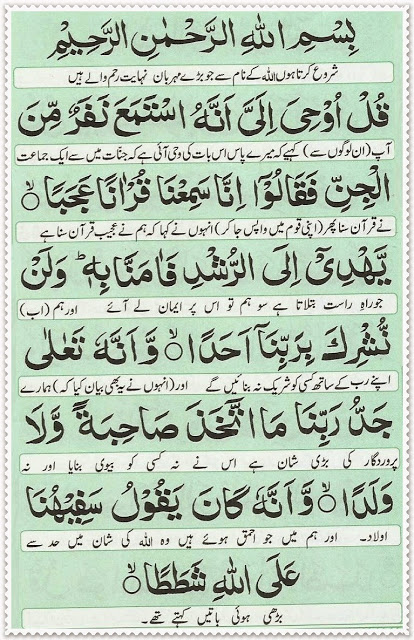 بِسْمِ اللهِ الرَّحْمٰنِ الرَّحِيْمِ
شروع کرتا ہوں اللہ کے نام سے جو بڑے مہربان نہایت رحم والے ہیں
قُلْ اُوْحِیَ اِلَیَّ اَنَّهُ اسْتَمَعَ نَفَرٌ مِّنَ
آپ (ان لوگوں سے) کہیے کہ میرے پاس اس بات کی وحی آئی ہے کہ جنات میں سے ایک جماعت
الْجِنِّ فَقَالُوْۤا اِنَّا سَمِعْنَا قُرْاٰنًا عَجَبًا ۙ
نے قرآن سنا پھر (اپنی قوم میں واپس جا کر) انہوں نے کہا کہ ہم نے عجیب قرآن سنا ہے
یَّهْدِیْۤ اِلَی الرُّشْدِ فَاٰمَنَّا بِهٖ ؕ وَلَنْ
جو راہِ راست بتلاتا ہے سو ہم تو اس پر ایمان لے آئے اور ہم (اب)
نُّشْرِكَ بِرَبِّنَاۤ اَحَدًا ۙ وَّ اَنَّهٗ تَعٰلٰی
اپنے رب کے ساتھ کسی کو شریک نہ بنائیں گے اور (انہوں نے یہ بھی بیان کیا کہ) ہمارے
جَدُّ رَبِّنَا مَا اتَّخَذَ صَاحِبَةً وَّلَا
پروردگار کی بڑی شان ہے اس نے نہ کسی کو بیوی بنایا اور نہ
وَلَدًا ۙ وَّ اَنَّهٗ كَانَ یَقُوْلُ سَفِیْهُنَا
اولاد۔ اور ہم میں جو احمق ہوئے ہیں وہ اللہ کی شان میں حد سے
عَلَی اللهِ شَطَطًا ۙ
بڑھی ہوئی باتیں کہتے تھے۔